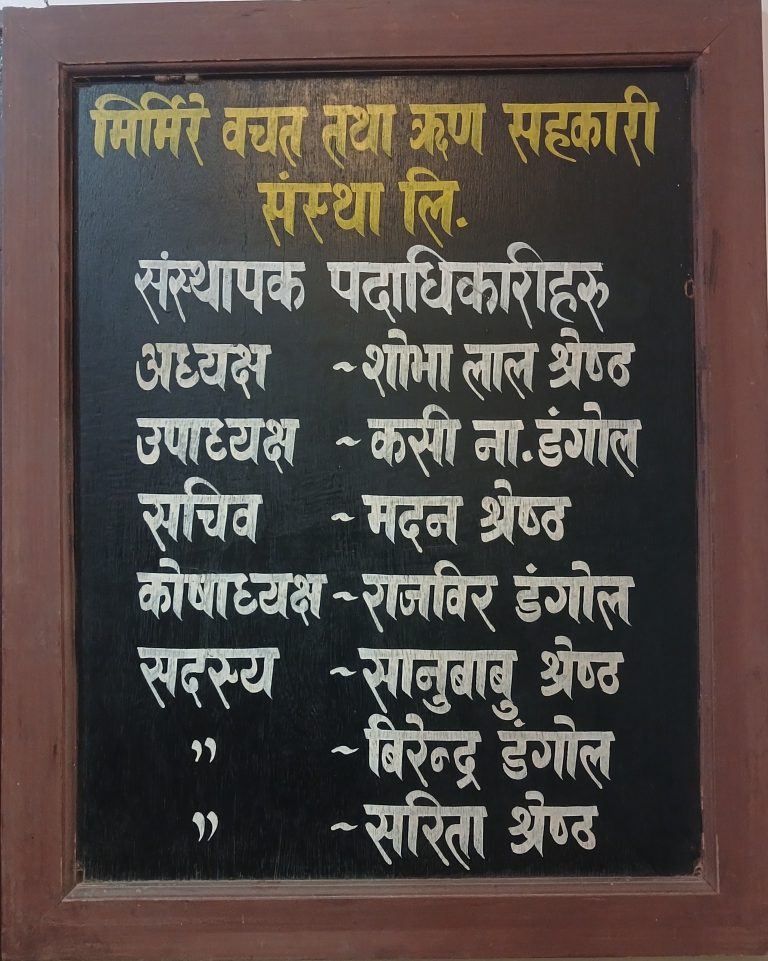 मिर्मिरे वचत तथा ऋण सहकारी
संस्था लि.
संस्थापक पदाधिकारीहरु
अध्यक्ष ~ शोभा लाल श्रेष्ठ
उपाध्यक्ष ~ कसी ना. डंगोल
सचिव ~ मदन श्रेष्ठ
कोषाध्यक्ष ~ राजविर डंगोल
सदस्य ~ सानुबाबु श्रेष्ठ
” ~ बिरेन्द्र डंगोल
” ~ सरिता श्रेष्ठ